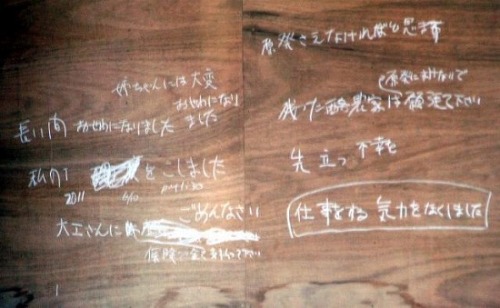 原発さえなければと思ます
残った酪農家は原発にまけないで頑張て下さい
先立つ不幸を
仕事をする気力をなくしました
姉ちゃんには大変おせわになりました
長い間おせわになりました
私の
をこしました
2011 6/10 pm1:30
ごめんなさい
大工さんに
保険で全て支払って下さい